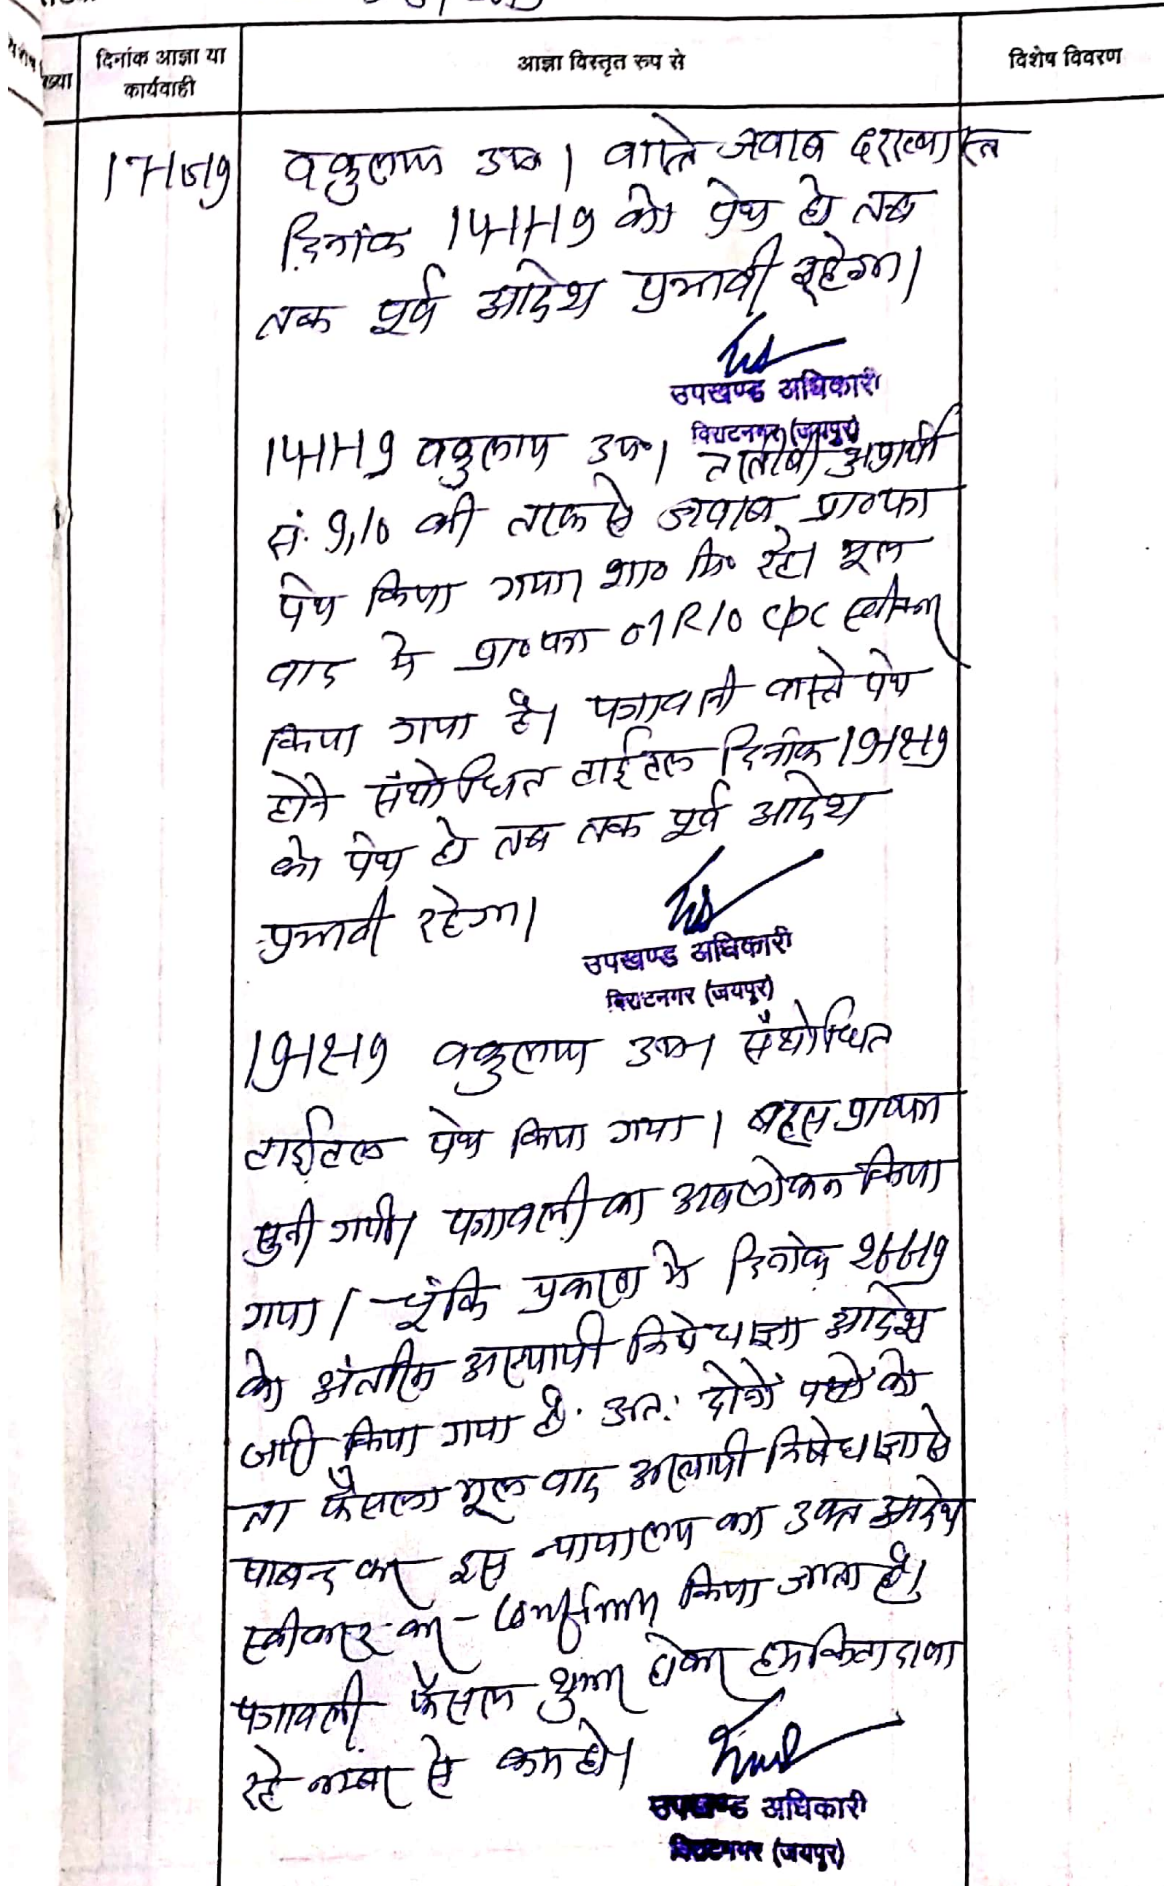 दिनांक आज्ञा या
कार्यवाही
आज्ञा विस्तृत रुप से
विशेष विवरण
वकुलाय उप०। वास्ते जवाब दरख्वास्त
दिनांक 14/11/19 को पेश हो तब
तक पूर्व आदेश प्रभावी रहेगा।
उपखण्ड अधिकारी
विराटनगर (जयपुर)
14/11/19 वकुलाय उप०। अप्रार्थी
सं. 9,10 की तरफ से जवाब प्रा०पत्र
पेश किया गया। शा० मि० रहे। मूल
वाद में प्रा०पत्र 01R10 CPC स्वीकार
किया गया है। पत्रावली वास्ते पेश
होने संशोधित टाईटल दिनांक 19/12/19
को पेश हो तब तक पूर्व आदेश
प्रभावी रहेगा।
उपखण्ड अधिकारी
विराटनगर (जयपुर)
19/12/19 वकुलाय उप०। संशोधित
टाईटल पेश किया गया। बहस प्रा०पत्र
सुनी गयी। पत्रावली का अवलोकन किया
गया। चूंकि प्रकरण में दिनांक
को अंतरिम अस्थायी निषेधाज्ञा आदेश
जारी किया गया है. अत: दोनों पक्षों को
ता फैसला मूल वाद अस्थायी निषेधाज्ञा से
पाबन्द कर इस न्यायालय का उक्त आदेश
स्वीकार कर - Confirm किया जाता है।
पत्रावली फैसल शुमार होकर हमकिता दावा
रहे नम्बर से कम हो।
उपखण्ड अधिकारी
विराटनगर (जयपुर)